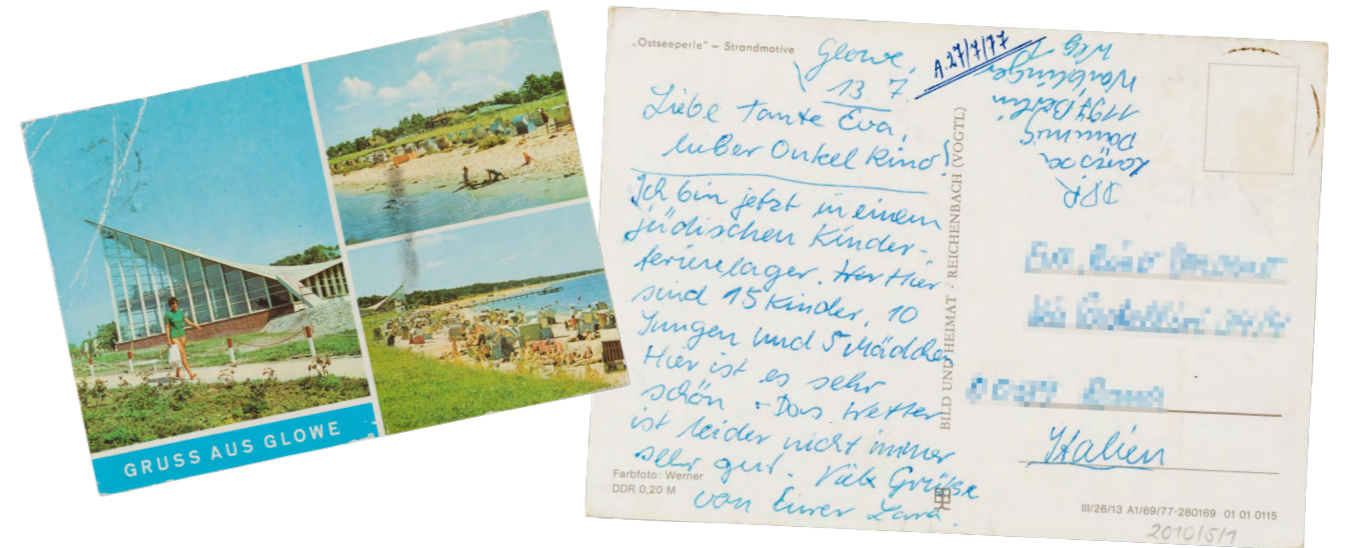 GRUSS AUS GLOWE
„Ostseeperle“ – Strandmotive
Glowe,
13. 7.
A. 27/7/77
Liebe Tante Eva,
lieber Onkel Rino!
Ich bin jetzt in einem
jüdischen Kinder-
ferienlager. Hier
sind 15 Kinder, 10
Jungen und 5 Mädchen
Hier ist es sehr
schön. Das Wetter
ist leider nicht immer
sehr gut. Viele Grüße
von Eurer Lara.
Farbfoto: Werner
DDR 0,20 M
BILD UND HEIMAT · REICHENBACH (VOGTL)
DDR
1194 Berlin
Weg
Italien
III/26/13 A1/69/77-280169 01 01 0115
2010/5/1